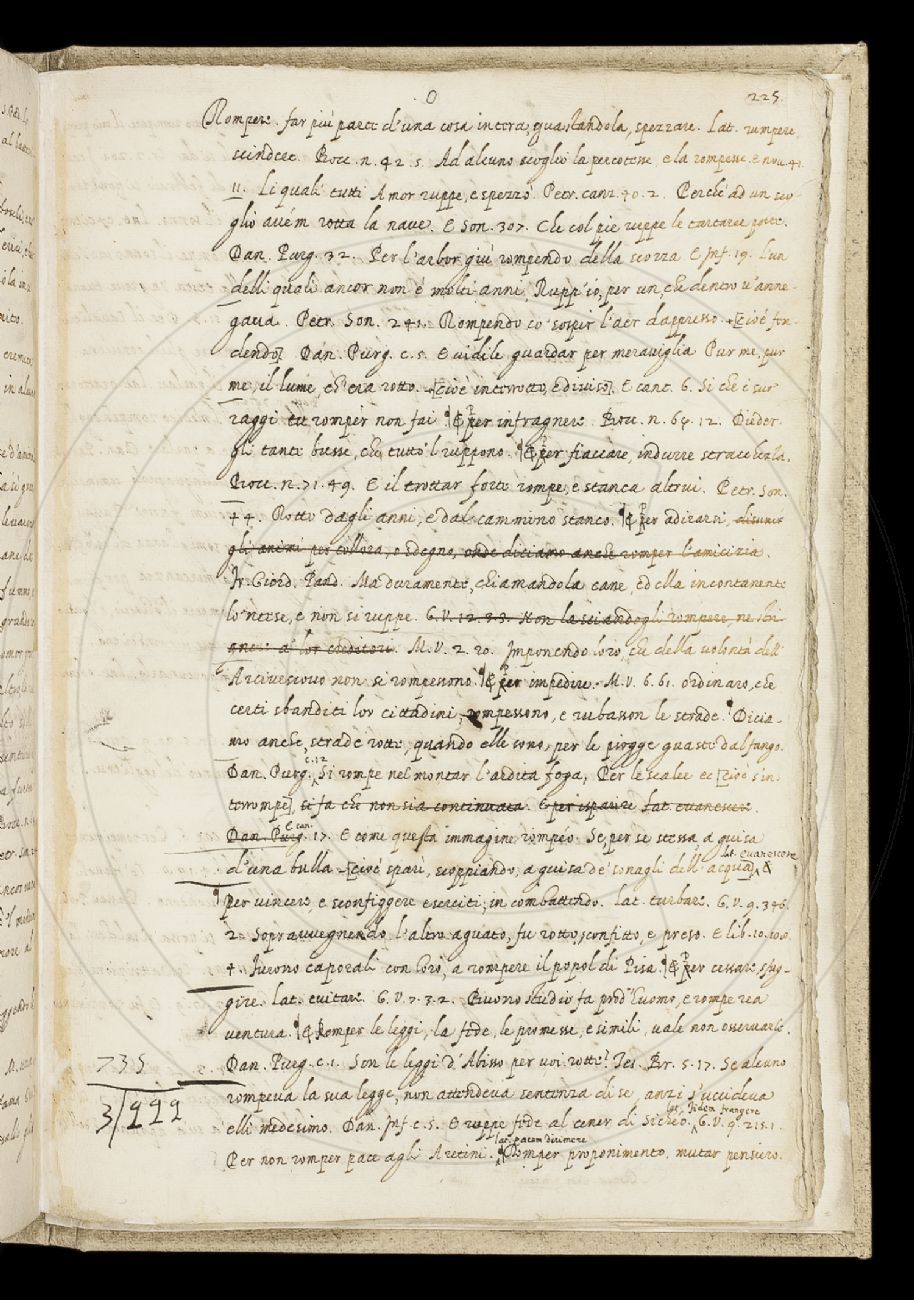 O 225
Rompere. far più parti d'una cosa intera, guastandola, spezzare. Lat. rumpere,
scindere. Bocc. n. 42. 5. Ad alcuno scoglio la percotesse, e la rompesse. e nou. 41.
11. Li quali tutti Amor ruppe, e spezzò. Petr. canz. 40. 2. Perchè ad un sco-
glio avem rotta la nave. E Son. 307. Che col piè ruppe le tartaree porte.
Dan. Purg. 32. Per l'arbor giù rompendo della scorza E Inf. 19. L'un
delli quali ancor non è molt'anni, Rupp'io, per un, che dentro v'anne-
gava. Petr. Son. 241. Rompendo co' sospir l'aer dappresso. [cioè fen-
dendo] Dan. Purg. c. 5. E vidile guardar per meraviglia Pur me, pur
me, il lume, ch'era rotto. [cioè interrotto, e diviso] E cant. 6. Sì che i suo'
raggi tu romper non fai. ¶ E per infragnere. Bocc. n. 69. 12. Dieder-
gli tante busse, che tutto 'l ruppono. ¶ E per fiaccare, indurre stracchezza.
Bocc. n. 71. 49. E il trottar forte rompe, e stanca altrui. Petr. Son.
44. Rotto dagli anni, e dal cammino stanco. ¶ E per adirarsi, disunir
gli animi per collora, o sdegno, onde diciamo anche romper l'amicizia.
Fr. Giord. Pred. Ma duramente, chiamandola cane, ed ella incontanente
lo 'ntese, e non si ruppe. G. V. 12. Non lasciandogli rompere, ne
a' lor creditori. M. V. 2. 20. Imponendo loro, che della volontà dell'
Arcivescovo non si rompessono. ¶ E per impedire. M. V. 6. 61. ordinaro, che
certi sbanditi lor cittadini, rompessono, e rubasson le strade. ¶ Dicia-
mo anche, strade rotte, quando elle sono, per le piogge guaste dal fango.
Dan. Purg. c. 12 Si rompe nel montar l'ardita foga, Per le scalee ec [cioè s'in-
terrompe] si fa che non sia continuata. E per isparire. Lat. evanescere.
Dan. Purg. E can. 17. E come questa immagine rompéo Se, per se stessa, a guisa
d'una bulla [cioè sparì, scoppiando, a guisa de' sonagli dell'acqua] lat. evanescere. E
¶ per vincere, e sconfiggere eserciti, in combattendo. Lat. turbare. G. V. 9. 346.
2. Sopravvegnendo l'altro aguato, fu rotto, sconfitto, e preso. E lib. 10.
4. Furono caporali con loro, a rompere il popol di Pisa. ¶ E per cessare, sfug-
gire. lat. evitare. G. V. 7. 3. 2. Buono studio fa prod'huomo, e rompe rea
ventura. ¶ E Romper le leggi, la fede, le promesse, e simili, vale non osservarle.
Dan. Purg. c. 1. Son le leggi d'Abisso per voi rotte? Tes. Br. 5. 17. Se alcuno
rompeva la sua legge, non attendeva sentenza di se, anzi s'uccideva
elli medesimo. Dan. Inf. c. 5. E ruppe fede al cener di Sicheo. lat. fidem frangere G. V. 9. 215. 1.
Per non romper pace agli Aretini. lat. pacem dirimere ¶ Romper proponimento. mutar pensiero.
735
3/222